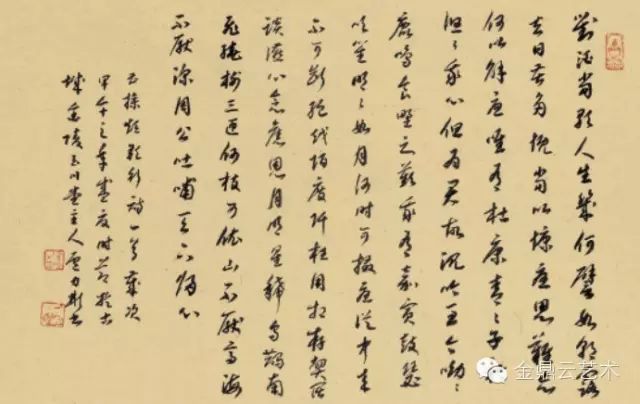 對酒當歌人生幾何譬如朝露
去日苦多慨當以慷憂思難忘
何以解憂唯有杜康青々子衿
悠々我心但為君故沉吟至今呦々
鹿鳴食野之苹我有嘉賓鼓瑟
吹笙明々如月何時可掇憂從中來
不可斷絕越陌度阡枉用相存契闊
談讌心念舊恩月明星稀烏鵲南
飛繞樹三匝何枝可依山不厭高海
不厭深周公吐哺天下歸心
操短歌行詩一首歲次
甲午之年盛夏时节於古
城金陵主人
金鼎云艺术